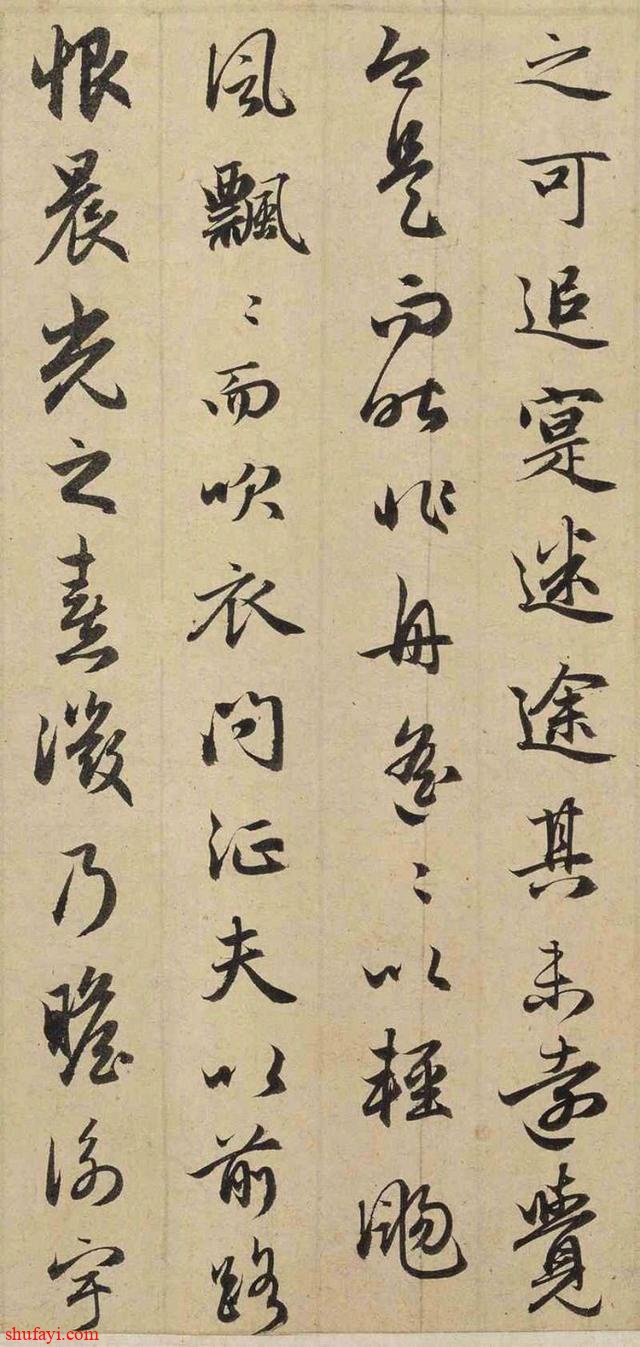 之可追寔迷途其未遠覺
今是而昨非舟遙〻以輕颺
風飄〻而吹衣問征夫以前路
恨晨光之熹微乃瞻衡宇
shufayi.com